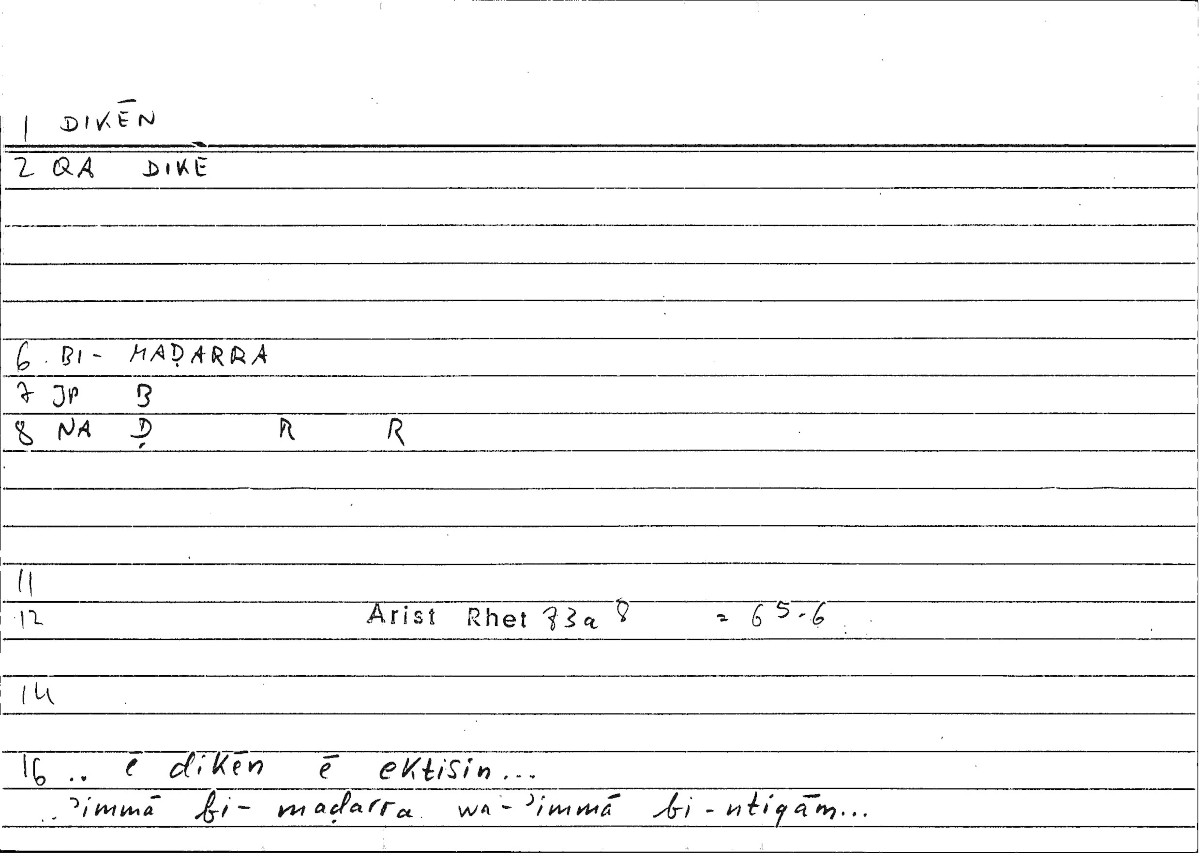 1 DIKĒN
2 QA DIKĒ
6 BI- MAḌARRA
7 JP B
8 NA Ḍ R R
11
12 Arist Rhet 73a 8 = 6 5-6
14
16 .. ē dikēn ē ektisin...
..ʾimmā bi- maḍarra wa-ʾimmā bi-ntiqām...